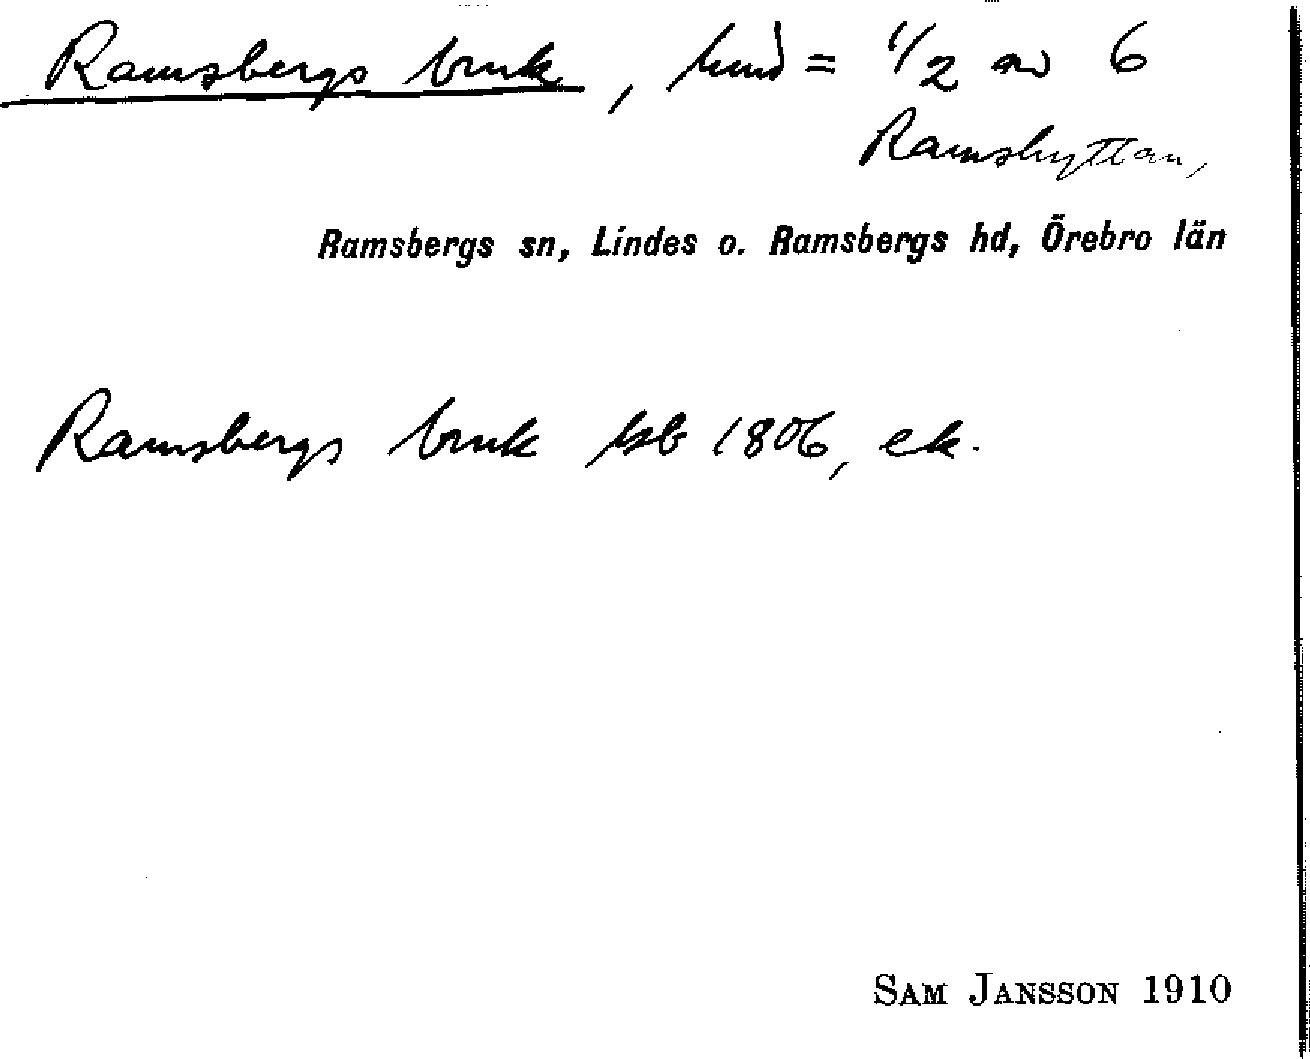 Ramsbergs bruk, hmd = 1/2 av 6
Ramshyttan,
Ramsbergs sn, Lindes o. Ramsbergs hd, Örebro län
Ramsbergs bruk hsb 1806, ek.
SAM JANSSON 1910